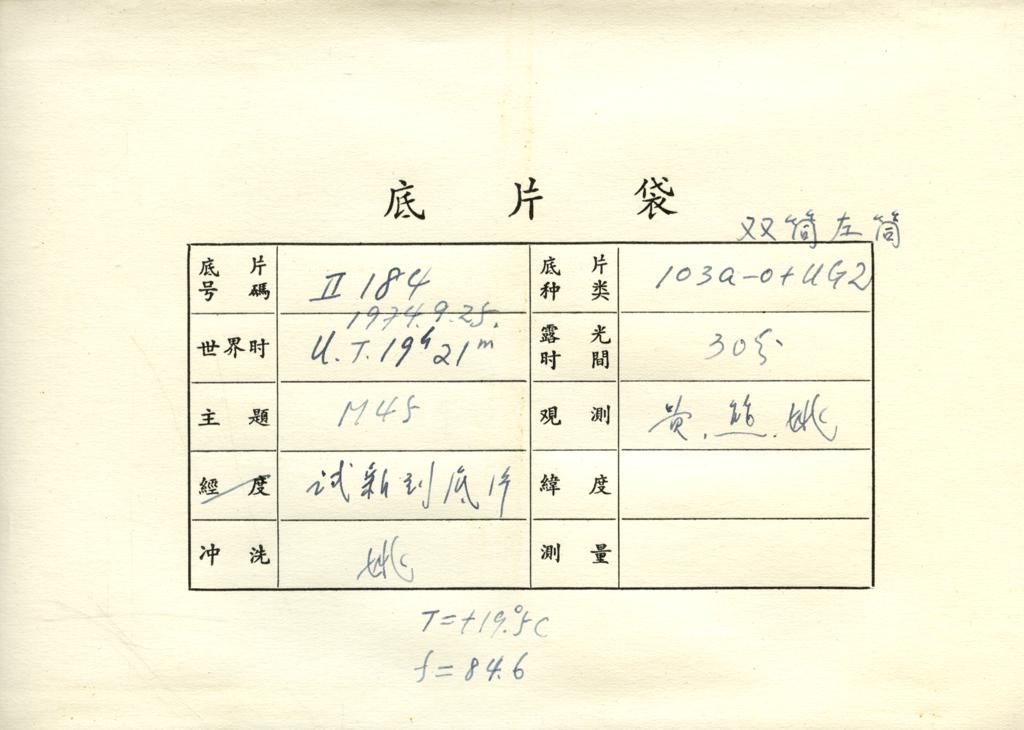 底片袋
双筒左筒
底片号碼 II 184 底片种类 103a-O+UG2
1974.9.25.
世界时 U.T. 19h 21m 露光时間 30分
主題 M45 观測 黄.熊.姚
經度 试新到底片 緯度
冲洗 姚 測量
T=+19.°5C
f=84.6